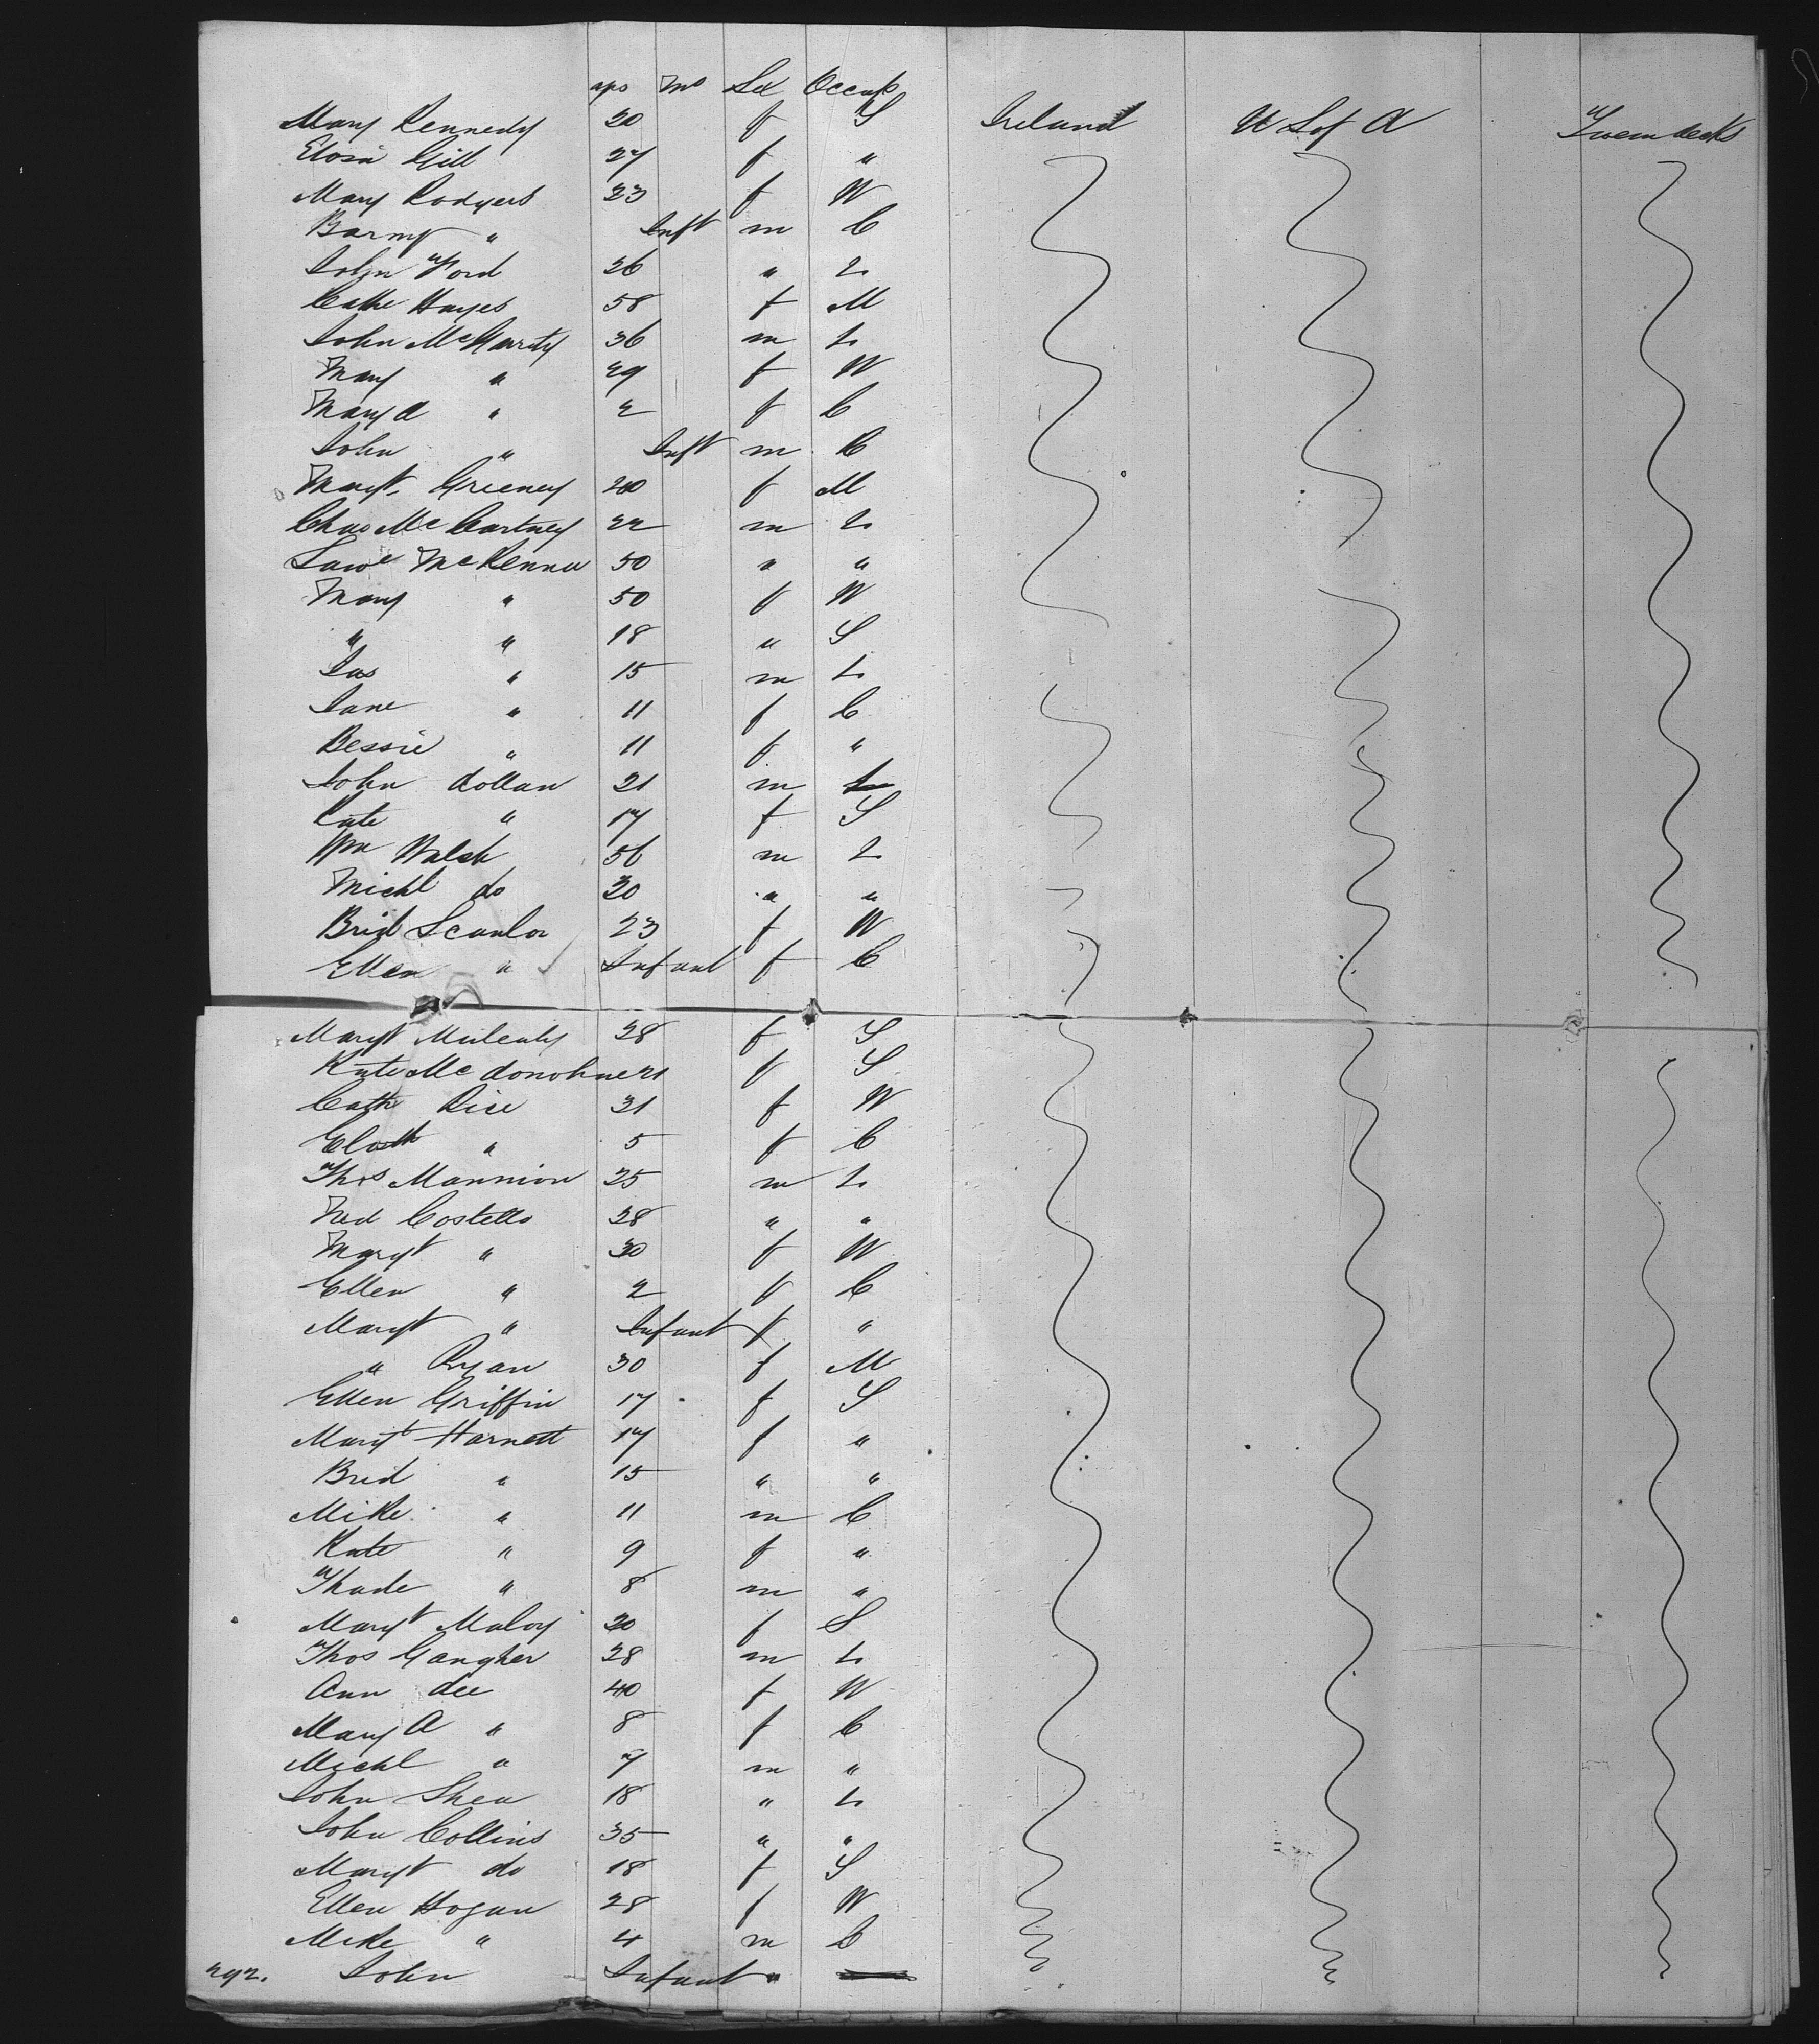 ages Ms Sex Occup
Mary Kennedy 20 f S Ireland U S of A Tween decks
Gill 27 f "
Mary Rodgers 23 f W
Barny " Inft m C
John Ford 26 " L
Cathe Hayes 58 f M
John McGarrity 36 m L
Mary " 29 f W
Mary A " 2 f C
John " Inft m C
Margt. Greeney 20 f M
Chas McCartney 22 m L
Lawe McKenna 50 " "
Mary " 50 f W
" " 18 " S
Jas " 15 m L
Jane " 11 f C
Bessie " 11 f "
John dollan 21 m L
Kate " 17 f S
Wm Walsh 56 m L
Michl do 30 " "
Brid Scanlon 23 f W
Ellen " Infant f C
Margt 28 f S
Kate McdonohueTwenty f S
Cathe Rice 31 f W
" 5 f C
Thos Mannion 25 m L
Ned Costello 28 " "
Margt " 30 f W
Ellen " 2 f C
Margt " Infant f "
" Ryan 30 f M
Ellen Griffin 17 f S
Margt Harnett 17 f "
Brid " 15 " "
Mike " 11 m C
Kate " 9 f "
Thade " 8 m "
Margt Maloy 20 f S
Thos 28 m L
Ann dee 40 f W
Mary A " 8 f C
Michl " 7 m "
John Shea 18 " L
John Collins 35 " "
Margt do 18 f S
Ellen Hogan 28 f W
Mike " 4 m C
292. John Infant "